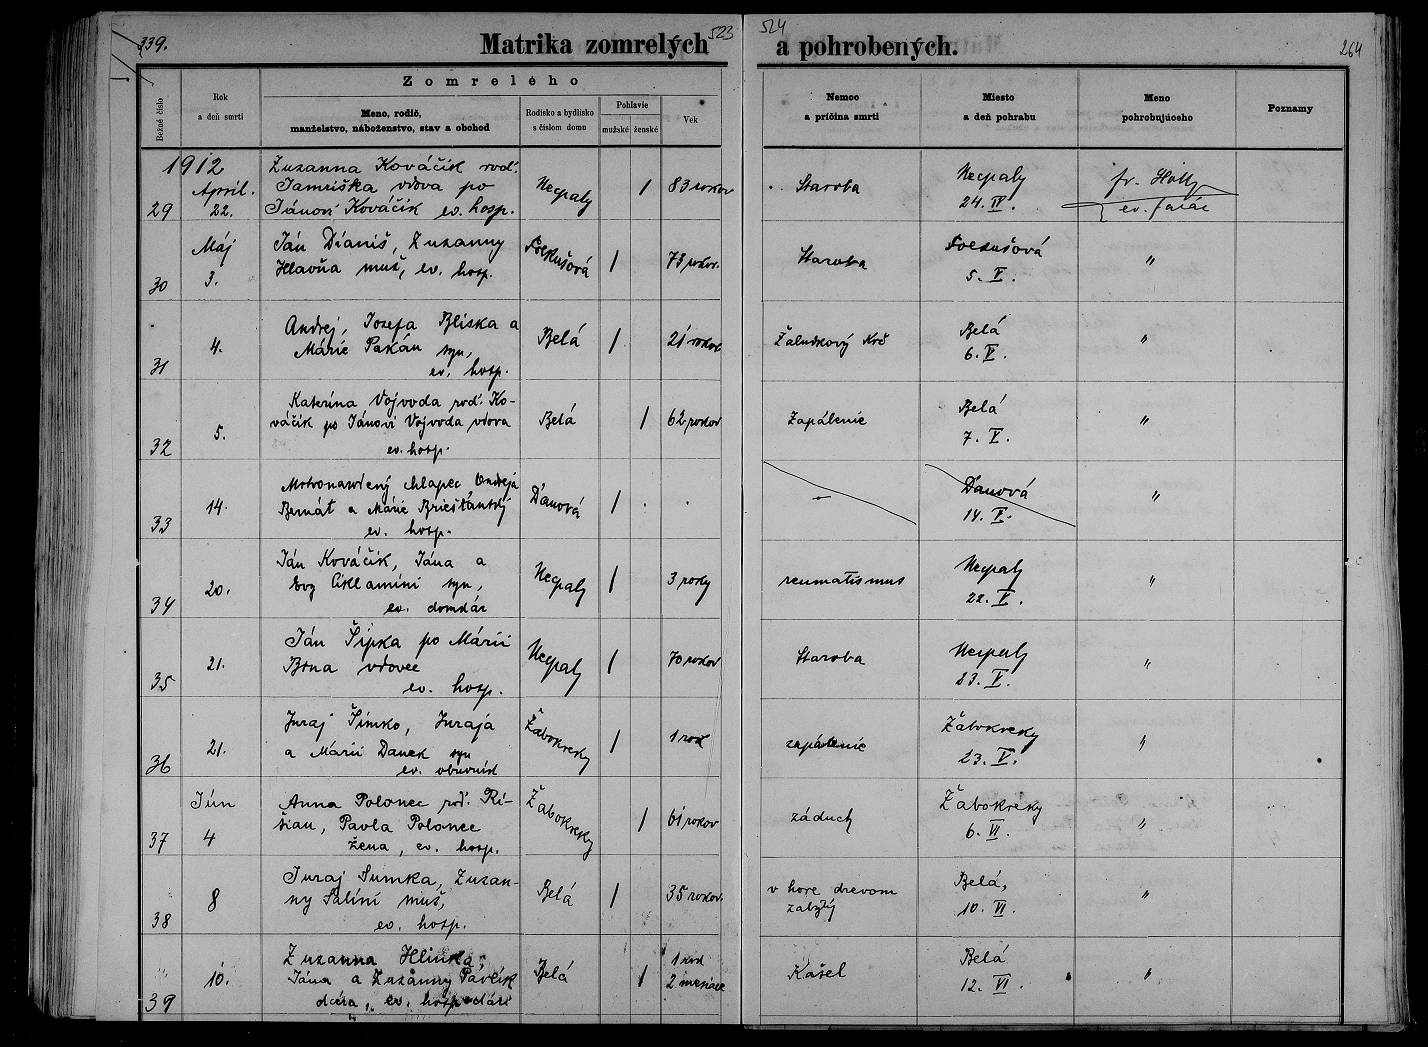 339.
523
524
264
Matrika zomrelých
a pohrobených.
Bežné číslo
Rok
a deň smrti
Zomrelého
Meno, rodič,
manželstvo, náboženstvo, stav a obchod
Rodisko a bydlisko
s číslom domu
Pohlavie
mužské
ženské
Vek
Nemoc
a príčina smrti
Miesto
a deň pohrabu
Meno
pohrobujúceho
Poznamy
1912
29
April.
22.
Zuzanna Kováčik rod.
Jamriška vdova po
Jánovi Kováčik ev. hosp.
Necpaly
1
83 rokov
Staroba
Necpaly
24. IV.
fr. Holtz
ev. farár
30
Máj
3.
Ján Dianiš, Zuzanny
Hlavňa muž, ev. hosp.
Folkušová
1
73 rokov.
Staroba
Folkušová
5. V.
"
31
4.
Andrej, Jozefa Bliska a
Márie Pakan syn,
ev. hosp.
Belá
1
21 rokov
Žaludkový Krč
Belá
6. V.
"
32
5.
Katerina Vojvoda rod. Ko-
váčik po Jánovi Vojvoda vdova
ev. hosp.
Belá
1
62 rokov
Zapálenie
Belá
7. V.
"
33
14.
Mrtvonarodený chlapec Ondreja
Bernát a Márie Brieštanský
ev. hosp.
Ďanová
1
.
.
—
Ďanová
14. V.
"
34
20.
Ján Kováčik, Jána a
Evy Ciklamini syn,
ev. domkár
Necpaly
1
3 roky
reumatismus
Necpaly
22. V.
"
35
21.
Ján Šipka po Márii
Brna vdovec
ev. hosp.
Necpaly
1
70 rokov
Staroba
Necpaly
23. V.
"
36
21.
Juraj Šimko, Juraja
a Márii Danek syn
ev. obuvník
Žabokreky
1
1 rok
zapálenie
Žabokreky
23. V.
"
37
Jún
4
Anna Polonec rod. Ri-
šian, Pavla Polonec
žena, ev. hosp.
Žabokreky
1
61 rokov
záduch
Žabokreky
6. VI.
"
38
8
Juraj Sumka, Zuzan-
ny Salini muž,
ev. hosp.
Belá
1
35 rokov.
v hore drevom
zabitý
Belá,
10. VI.
"
39
10.
Zuzanna Hlinka,
Jána a Zuzanny Pavčik
dcéra, ev. hospodári
Belá
1
1 rok
2 mesiace
Kašel
Belá
12. VI.
"